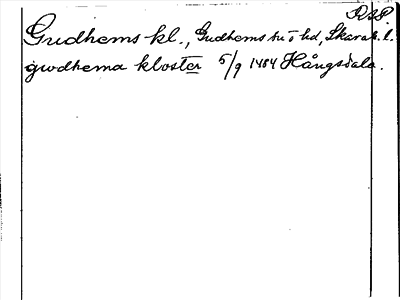 RAP.
Gudhems kl., Gudhems sn o hd, Skarab. l.
gwdhema kloster 5/9 1484 Hångsdala.